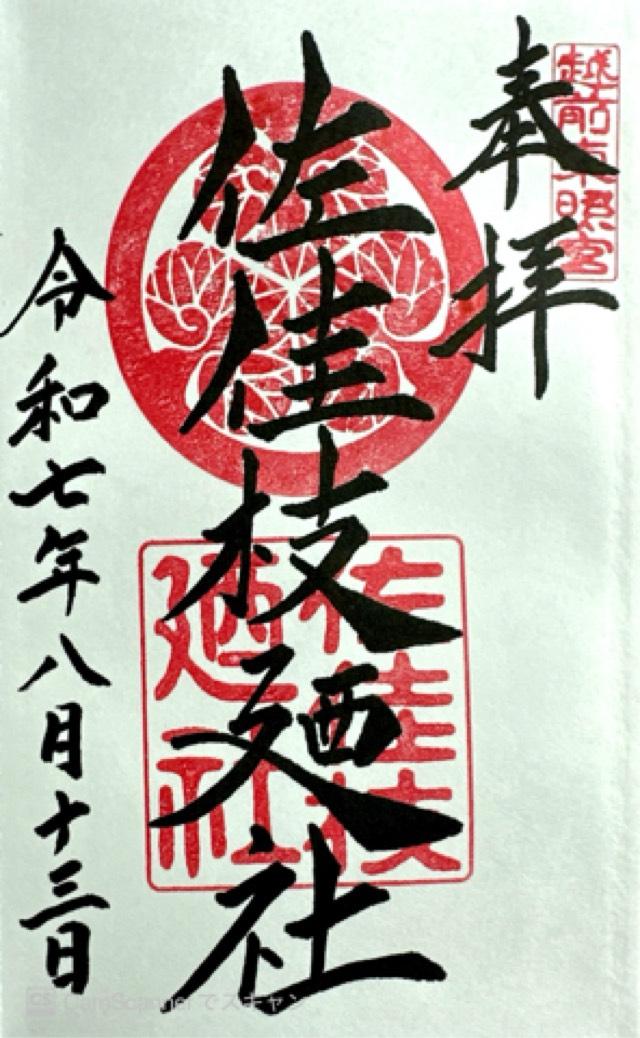 越前東照宮
奉拝
佐佳枝廼社
佐佳枝
廼社
令和七年八月十三日
CS CamScanner でスキャン